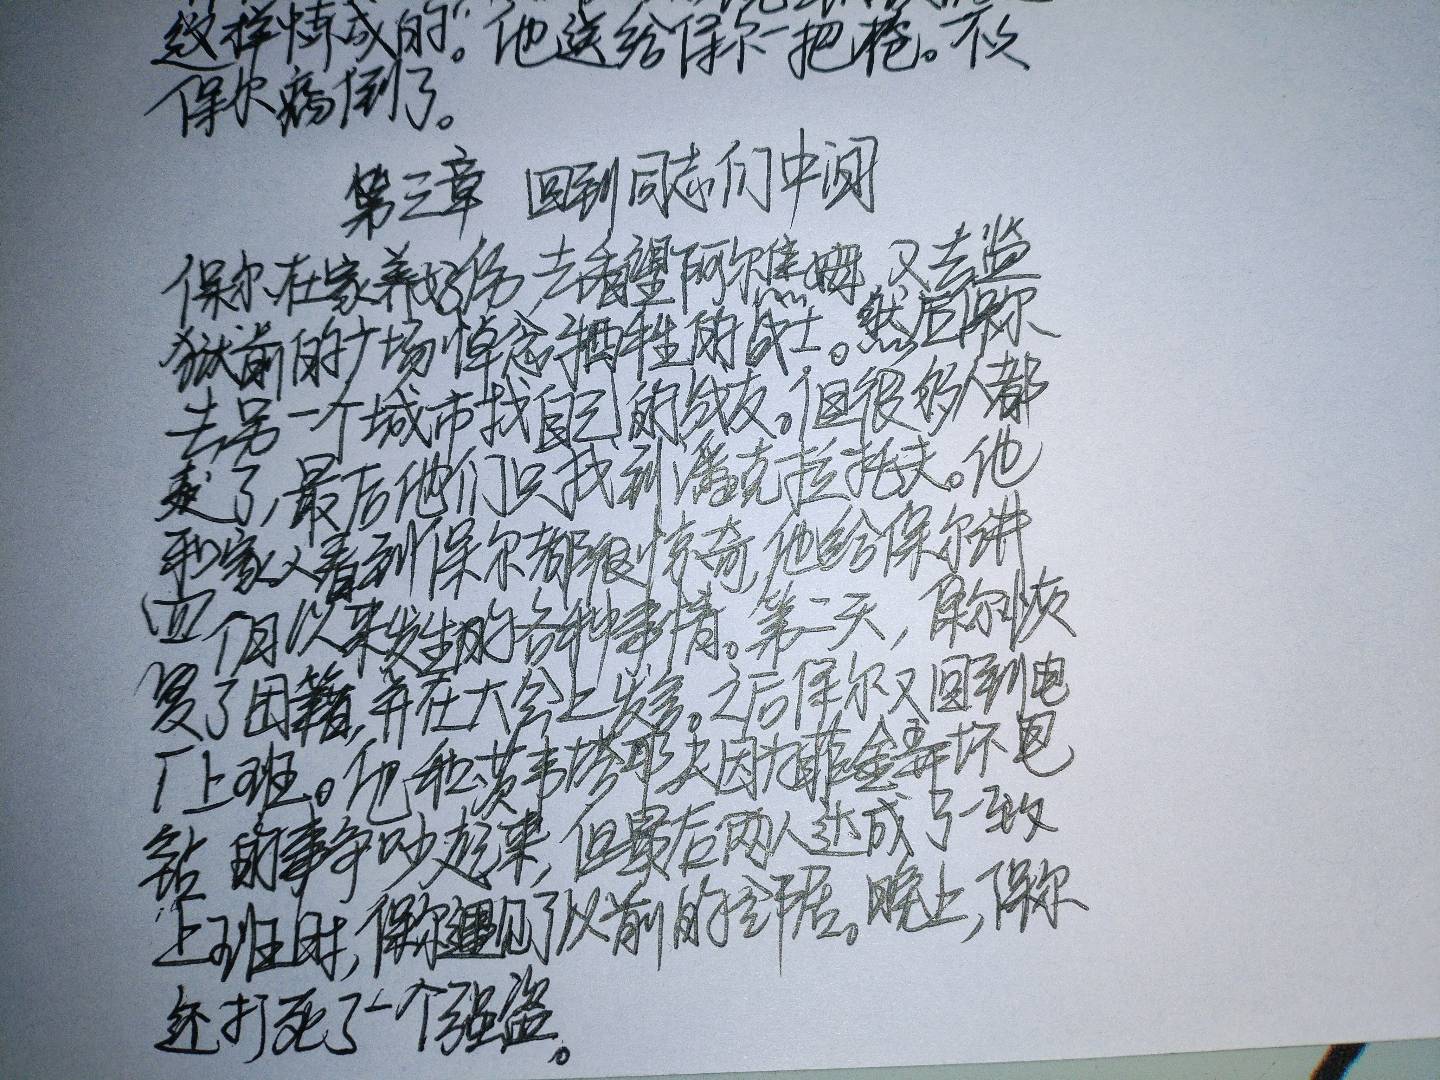 这样炼成的。”他送给保尔一把枪。不久
保尔病倒了。
第三章 回到同志们中间
保尔在家养好伤,去看望阿尔焦姆,又去监
狱前的广场悼念牺牲的战士。然后保尔
去另一个城市找自己的战友。但很多人都
走了,最后他们只找到潘克拉托夫。他
和家人看到保尔都很惊奇,他给保尔讲
四个月以来发生的各种事情。第二天,保尔恢
复了团籍,并在大会上发言。之后保尔又回到电
厂上班。他和茨韦塔耶夫因为菲金弄坏电
钻的事争吵起来,但最后两人达成了一致
上班时,保尔遇见了以前的邻居。晚上,保尔
还打死了一个强盗。